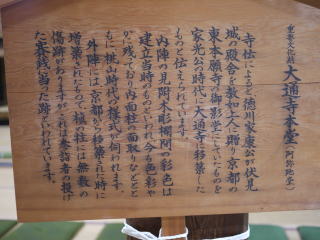 重要文化財
大通寺本堂(阿弥陀堂)
寺伝によると徳川家康公が伏見
城の殿舎を教如上人に贈り京都の
東本願寺の御影堂にしていたものを
家光公の時代に大通寺に移築した
ものと伝えられています。
内陣の見附木彫欄間の彩色は
建立当時のものといわれ今も色彩や
か残っており内面柱の面取りなどとと
もに桃山時代の様式が伺われます。
外陣には京都から移築された時に
増築されたもので
柱には無数の
傷跡がありますがこれは参詣者の投げ
た賽銭が当った跡といわれています。